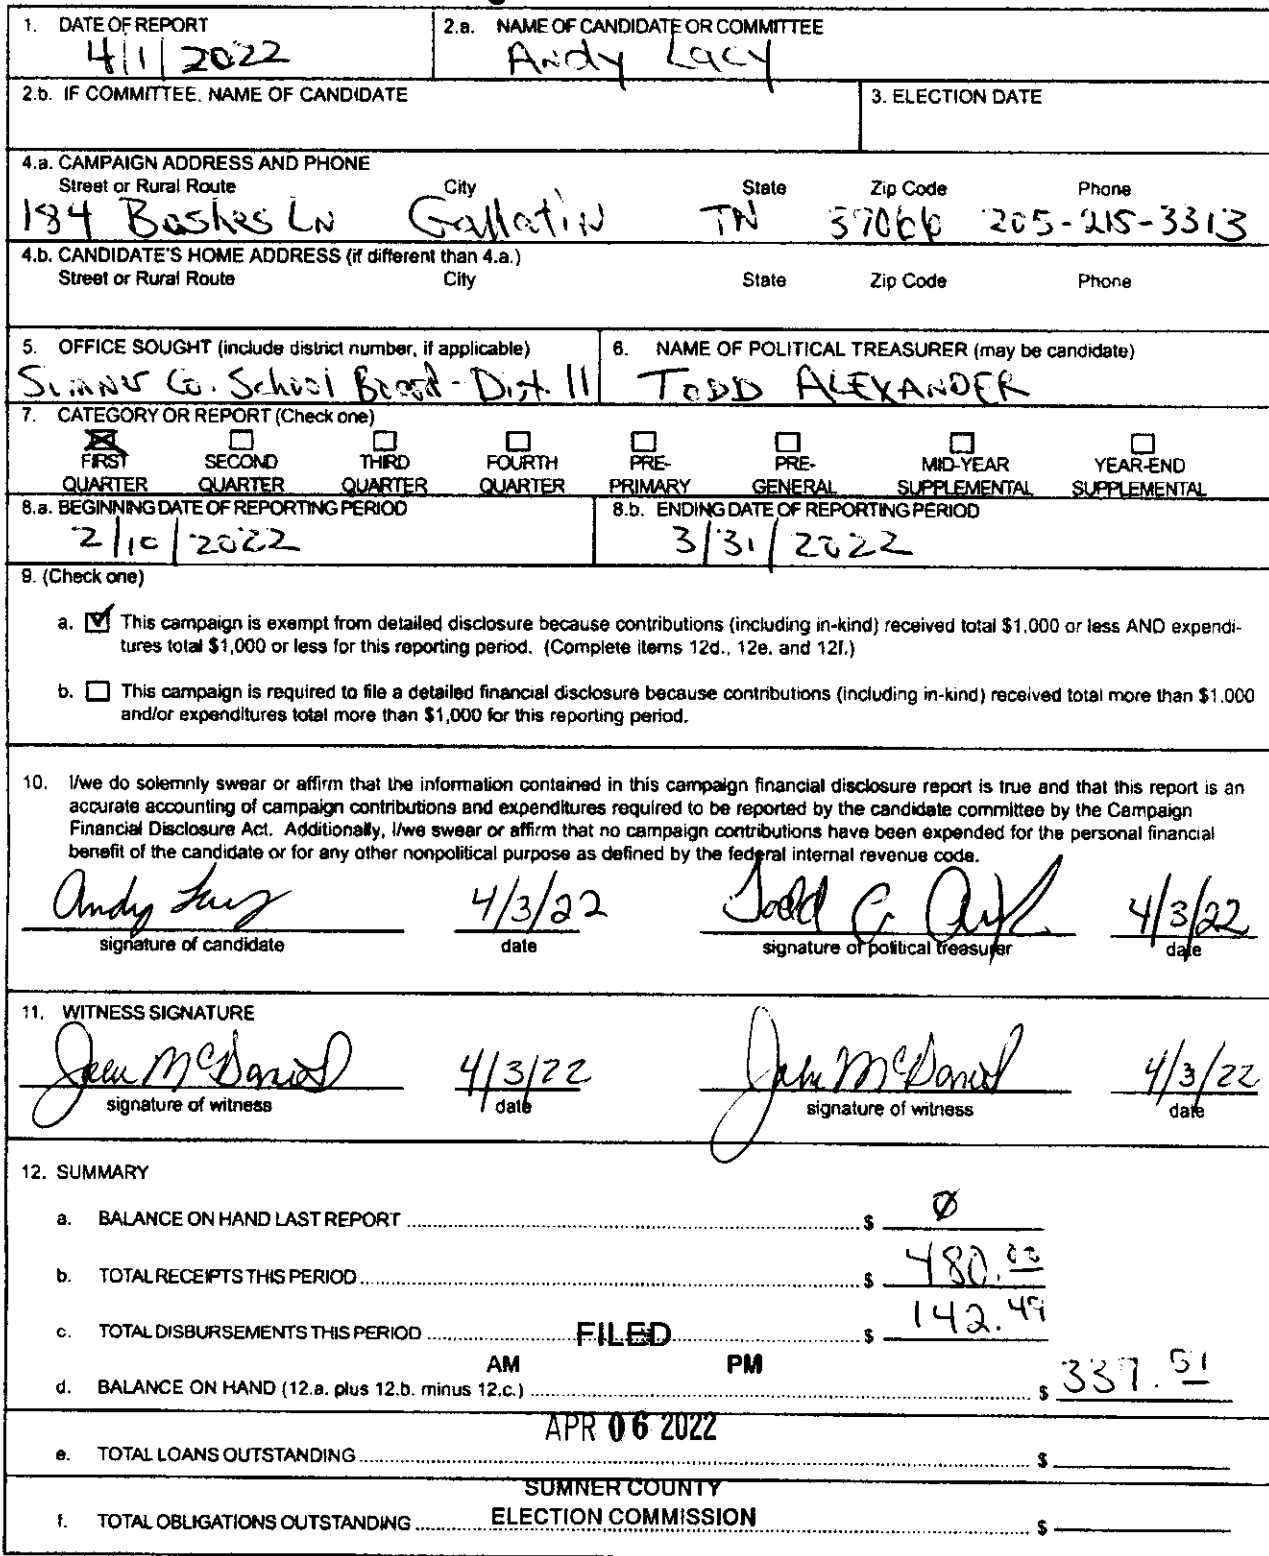 1. DATE OF REPORT
4/1/2022
2.a. NAME OF CANDIDATE OR COMMITTEE
Andy Lacy
2.b. IF COMMITTEE, NAME OF CANDIDATE
3. ELECTION DATE
4.a. CAMPAIGN ADDRESS AND PHONE
Street or Rural Route City State Zip Code Phone
184 LN Gallatin TN 37066 205-215-3313
4.b. CANDIDATE'S HOME ADDRESS (if different than 4.a.)
Street or Rural Route City State Zip Code Phone
5. OFFICE SOUGHT (include district number, if applicable)
Sumner Co. School Board - Dist. 11
6. NAME OF POLITICAL TREASURER (may be candidate)
TODD ALEXANDER
7. CATEGORY OR REPORT (Check one)
FIRST QUARTER
SECOND QUARTER
THIRD QUARTER
FOURTH QUARTER
PRE-PRIMARY
PRE-GENERAL
MID-YEAR SUPPLEMENTAL
YEAR-END SUPPLEMENTAL
8.a. BEGINNING DATE OF REPORTING PERIOD
2/10/2022
8.b. ENDING DATE OF REPORTING PERIOD
3/31/2022
9. (Check one)
a. This campaign is exempt from detailed disclosure because contributions (including in-kind) received total $1,000 or less AND expendi-
tures total $1,000 or less for this reporting period. (Complete items 12d., 12e. and 12f.)
b. This campaign is required to file a detailed financial disclosure because contributions (including in-kind) received total more than $1.000
and/or expenditures total more than $1,000 for this reporting period.
10. I/we do solemnly swear or affirm that the information contained in this campaign financial disclosure report is true and that this report is an
accurate accounting of campaign contributions and expenditures required to be reported by the candidate committee by the Campaign
Financial Disclosure Act. Additionally, I/we swear or affirm that no campaign contributions have been expended for the personal financial
benefit of the candidate or for any other nonpolitical purpose as defined by the federal internal revenue code.
Andy Lacy 4/3/22 Todd 4/3/22
signature of candidate date signature of political treasurer date
11. WITNESS SIGNATURE
McDaniel 4/3/22 McDaniel 4/3/22
signature of witness date signature of witness date
12. SUMMARY
a. BALANCE ON HAND LAST REPORT $ Ø
b. TOTAL RECEIPTS THIS PERIOD $ 480.00
c. TOTAL DISBURSEMENTS THIS PERIOD $ 142.49
FILED
AM PM
d. BALANCE ON HAND (12.a. plus 12.b. minus 12.c.) $ 337.51
APR 06 2022
e. TOTAL LOANS OUTSTANDING $
SUMNER COUNTY
ELECTION COMMISSION
f. TOTAL OBLIGATIONS OUTSTANDING $